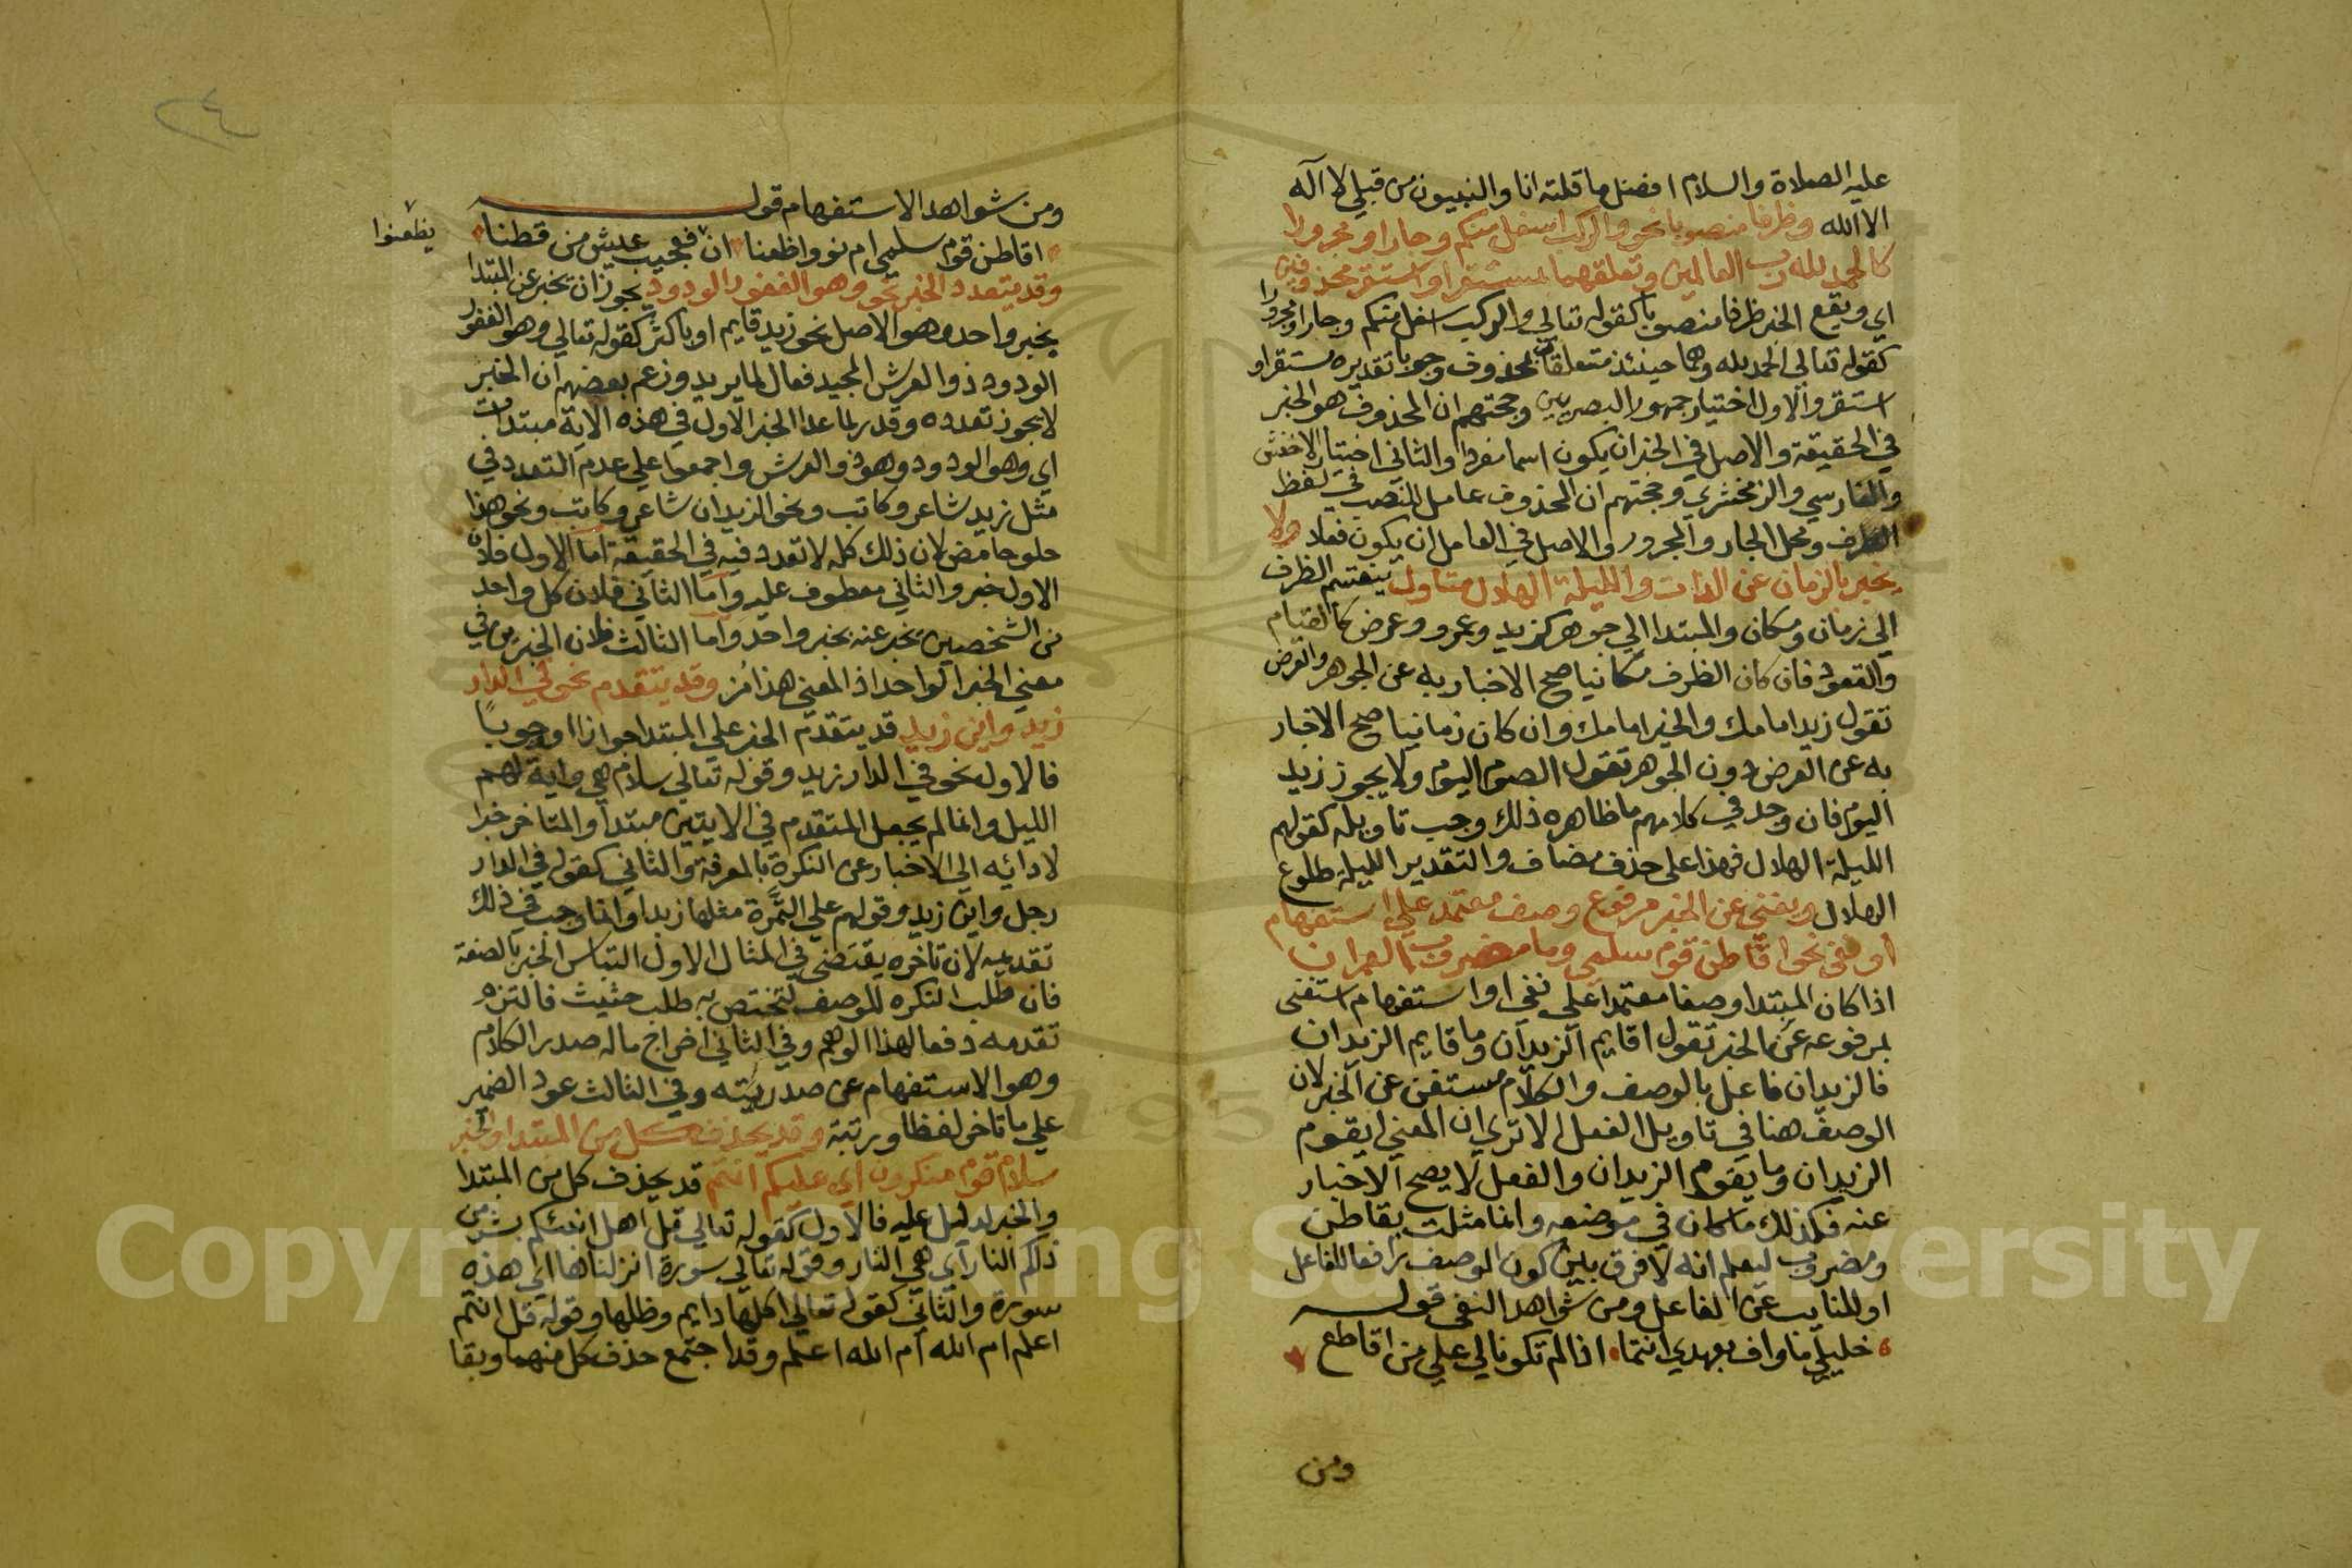 عليه الصلاة والسلام افضل ما قلته انا والنبيون من قبلي لا اله
الا الله وظرفا منصوبا نحو والركب اسفل منكم وجارا ومجرورا
كالحمد لله رب العالمين وتعلقهما بمستقر او استقر محذوفين
اي ويقع الخبر ظرفا منصوبا كقوله تعالي والركب اسفل منكم وجارا ومجرورا
كقوله تعالي الحمد لله وهما حينئذ متعلقان بمحذوف وجوبا تقديره مستقر او
استقر والاول اختيار جمهور البصريين وحجتهم ان المحذوف هو الخبر
في الحقيقة والاصل في الخبر ان يكون اسما مفردا والثاني اختيار الاخفش
والفارسي والزمخشري وحجتهم ان المحذوف عامل النصب في لفظ
الظرف ومحل الجار والمجرور والاصل في العامل ان يكون فعلا ولا
يخبر بالزمان عن الذات والليلة الهلال متاول ينقسم الظرف
الي زمان ومكان والمبتدا الي جوهر كزيد وعمرو وعرض كالقيام
والقعود فان كان الظرف مكانيا صح الاخبار به عن الجوهر والعرض
تقول زيد امامك والخير امامك وان كان زمانيا صح الاخبار
به عن العرض دون الجوهر تقول الصوم اليوم ولا يجوز زيد
اليوم فان وجد في كلامهم ما ظاهره ذلك وجب تاويله كقولهم
الليلة الهلال فهذا علي حذف مضاف والتقدير الليلة طلوع
الهلال ويغني عن الخبر مرفوع وصف معتمد علي استفهام
او نفي نحو اقاطن قوم سلمي وما مضروب العمران
اذا كان المبتدا وصفا معتمدا علي نفي او استفهام استغني
بمرفوعه عن الخبر تقول اقايم الزيدان وما قايم الزيدان
فالزيدان فاعل بالوصف والكلام مستغن عن الخبر لان
الوصف هنا في تاويل الفعل الا تري ان المعني ايقوم
الزيدان وما يقوم الزيدان والفعل لا يصح الاخبار
عنه فكذلك ما كان في موضعه وانما مثلت بقاطن
ومضروب ليعلم انه لا فرق بين كون الوصف رافعا للفاعل
او للنايب عن الفاعل ومن شواهد النفي قوله
خليلي ما واف بعهدي انتما اذا لم تكونا لي علي من اقاطع
ومن
٢٤
ومن شواهد الاستفهام قوله
اقاطن قوم سلمي ام نووا ظعنا ان فعجيب عيش من قطنا
يظعنوا
وقد يتعدد الخبر نحو وهو الغفور الودود يجوز ان تخبر عن المبتدا
بخبر واحد وهو الاصل نحو زيد قايم او باكثر كقوله تعالي وهو الغفور
الودود ذو العرش المجيد فعال لما يريد وزعم بعضهم ان الخبر
لا يجوز تعدده وقدر لما عدا الخبر الاول في هذه الاية مبتدات
اي وهو الودود وهو ذو العرش واجمعوا علي عدم التعدد في
مثل زيد شاعر وكاتب ونحو الزيدان شاعر وكاتب ونحو هذا
حلو حامض لان ذلك كله لا تعدد فيه في الحقيقة اما الاول فلان
الاول خبر والثاني معطوف عليه واما الثاني فلان كل واحد
من الشخصين تخبر عنه بخبر واحد واما الثالث فلان الخبرين في
معني الخبر الواحد اذ المعني هذا مز وقد يتقدم نحو في الدار
زيد واين زيد قد يتقدم الخبر علي المبتدا جوازا او وجوبا
فالاول نحو في الدار زيد وقوله تعالي سلام هي واية لهم
الليل وانما لم يجعل المتقدم في الايتين مبتدا والمتاخر خبرا
لادائه الي الاخبار عن النكرة بالمعرفة والثاني كقوله في الدار
رجل واين زيد وقولهم علي التمرة مثلها زبدا وانما وجب في ذلك
تقديمه لان تاخره يقتضي في المثال الاول التباس الخبر بالصفة
فان طلب النكره للوصف لتختص به طلب حثيث فالتزم
تقدمه دفعا لهذا الوهم وفي الثاني اخراج ما له صدر الكلام
وهو الاستفهام عن صدريته وفي الثالث عود الضمير
علي ما تاخر لفظا ورتبة وقد يحذف كل من المبتدا والخبر
سلام قوم منكرون اي عليكم انتم قد يحذف كل من المبتدا
والخبر لدليل عليه فالاول كقوله تعالي قل اهل انبئكم بشر من
ذلكم النار اي هي النار وقوله تعالي سورة انزلناها اي هذه
سورة والثاني كقوله تعالي اكلها دايم وظلها وقوله قل اانتم
اعلم ام الله ام الله اعلم وقد اجتمع حذف كل منهما وبقا